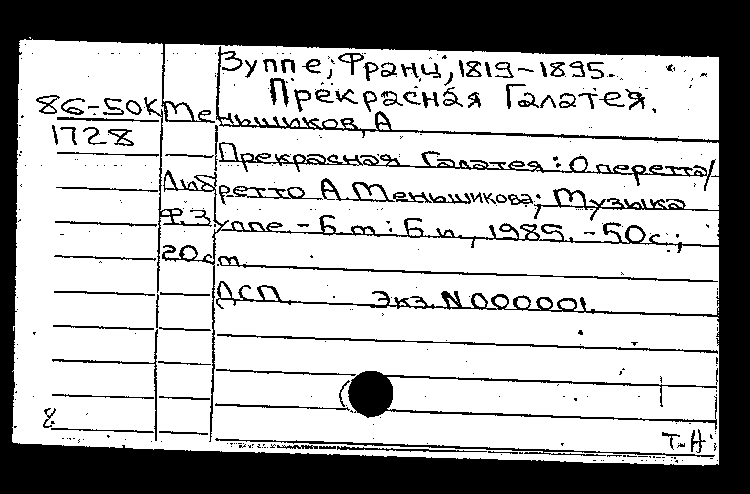 Зуппе, Франц, 1819-1895.
Прекрасная Галатея.
86-50К Меньшиков, А
1728
Прекрасная Галатея: Оперетта/
Либретто А. Меньшикова; Музыка
Ф. Зуппе. - Б. м.: Б. и., 1985. - 50 с.;
20 см.
ДСП. Экз. N 000001.
8
Т-А